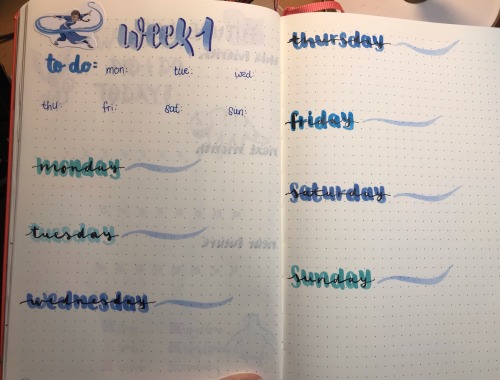 week 1
to do: mon: tue: wed:
thu: fri: sat: sun:
monday
tuesday
wednesday
thursday
friday
saturday
sunday